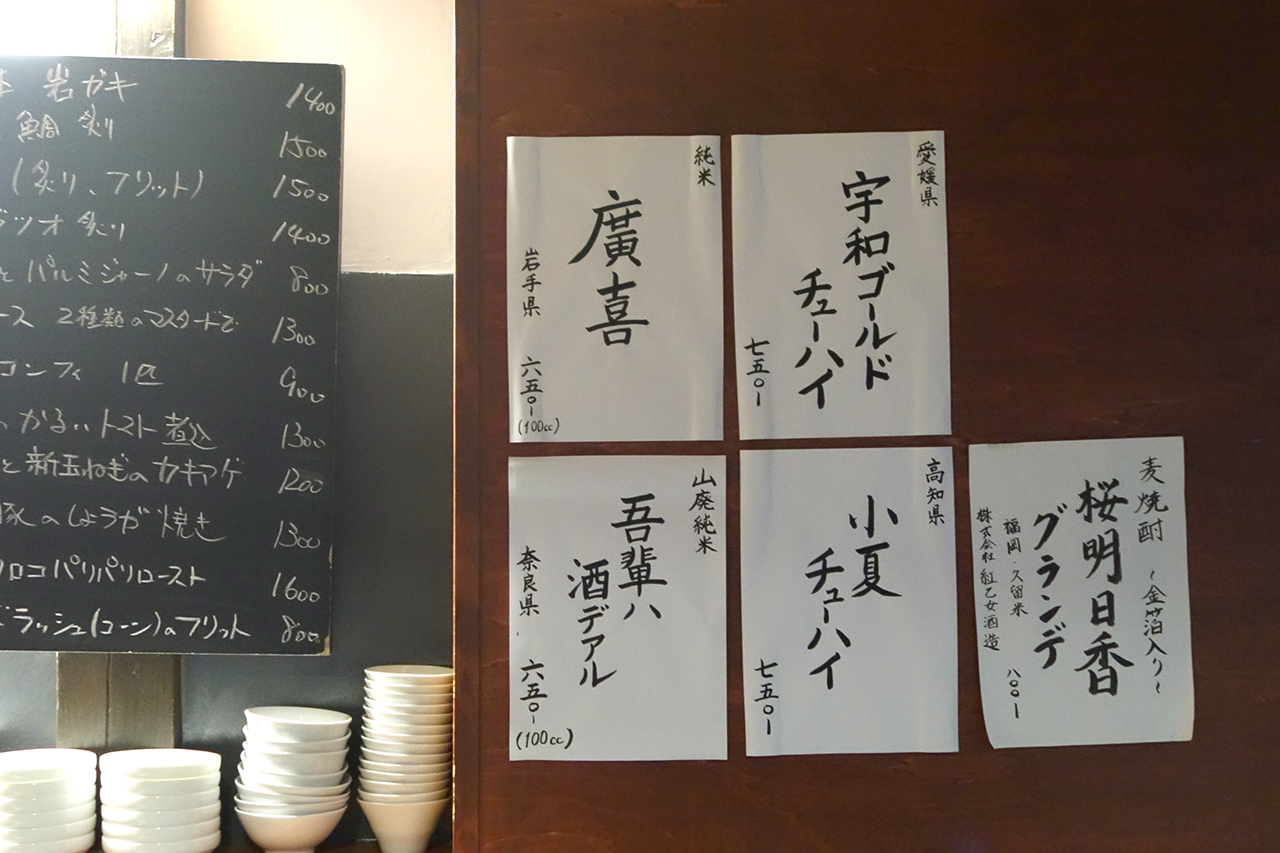 岩ガキ 1400
鯛 炙り 1500
(炙り、フリット) 1500
ツオ 炙り 1400
と パルミジャーノのサラダ 800
ース 2種類のマスタードで 1300
コンフィ 1匹 900
かるいトマト煮込 1300
と新玉ねぎのカキアゲ 1200
豚のしょうが焼き 1300
ロコパリパリロースト 1600
ラッシュ(コーン)のフリット 800
愛媛県
宇和ゴールド
チューハイ
七五〇-
純米
廣喜
岩手県 六五〇-
(100cc)
山廃純米
吾輩ハ
酒デアル
奈良県 六五〇-
(100cc)
高知県
小夏
チューハイ
七五〇-
麦焼酎 ~金箔入り~
桜明日香
グランデ
福岡・久留米 八〇〇-
株式会社 紅乙女酒造